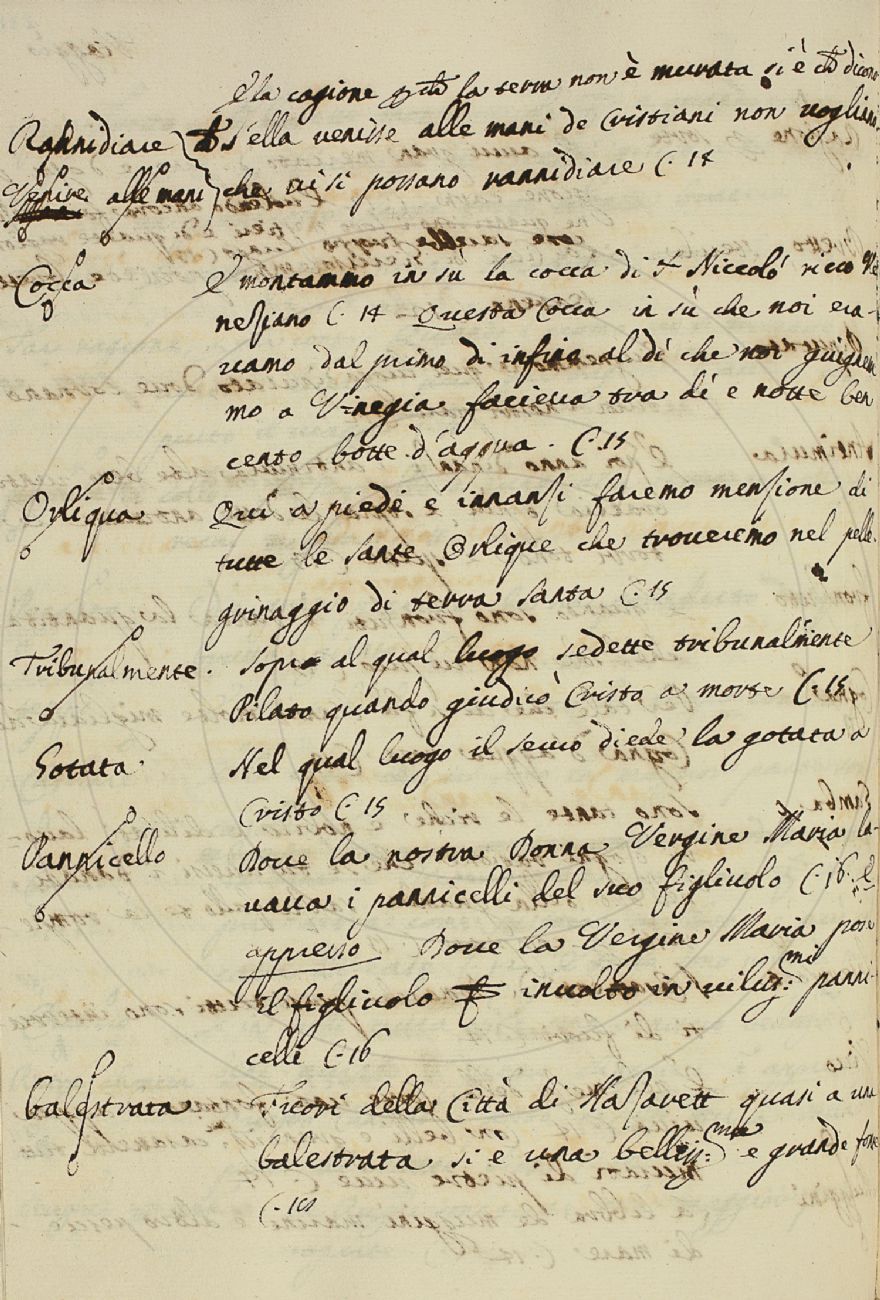 E la cagione pch la terra non è murata si è ch dicono
Rannidiare S'ella venisse alle mani de Cristiani non vogliano
Venire alle mani che vi si possano rannidiare C. 14
Cocca E montammo in sù la cocca di S. Niccolò ricco Ve
neziano C. 14 Questa Cocca in sù che noi era-
vamo dal primo di infino al dì che noi giugnem
mo a Vinegia facieva tra dì e notte ben
cento botte d'aqqua. C. 15
Orliqua Quì a piede e innanzi faremo menzione di
tutte le Sante Orlique che troveremo nel pelle-
grinaggio di terra Santa C. 15
Tribunalmente. Sopra al qual luogo sedette tribunalmente
Pilato quando giudicò Cristo a morte C. 15
Gotata. Nel qual luogo il servo diede la gotata a
Cristo C. 15
Pannicello Dove la nostra Donna Vergine Maria la-
vava i pannicelli del suo figliuolo C. 16. e
appresso Dove la Vergine Maria pose
il figliuolo involto in viliss:mi panni-
celli C. 16
balestrata Fuori della Città di Nazarett quasi a una
balestrata si e una belliss:ma e grande fonte